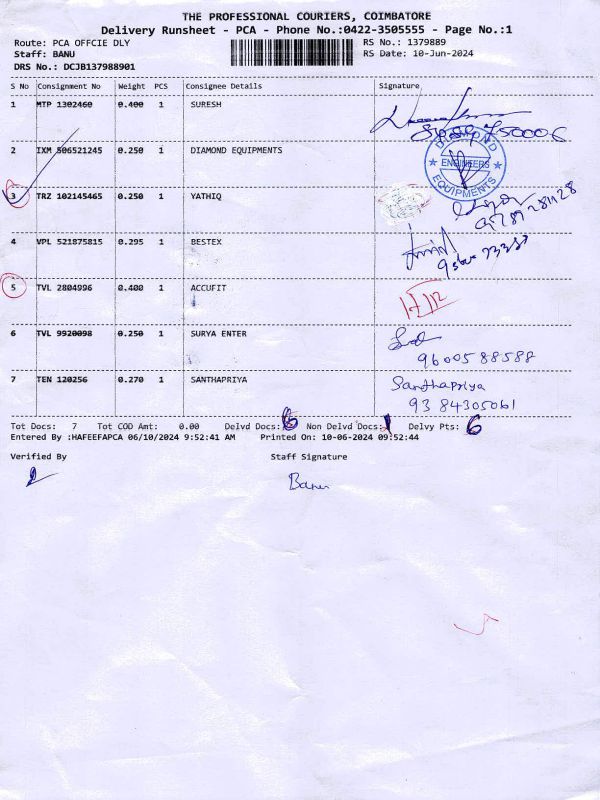 THE PROFESSIONAL COURIERS, COIMBATORE
Delivery Runsheet - PCA - Phone No.:0422-3505555 - Page No.:1
Route: PCA OFFCIE DLY RS No.: 1379889
Staff: BANU RS Date: 10-Jun-2024
DRS No.: DCJB137988901
S No Consignment No Weight PCS Consignee Details Signature
1 MTP 1302460 0.400 1 SURESH
2 IXM 506521245 0.250 1 DIAMOND EQUIPMENTS
DIAMOND
ENGINEERS
EQUIPMENTS
3 TRZ 102145465 0.250 1 YATHIQ
4 VPL 521875815 0.295 1 BESTEX
5 TVL 2804996 0.400 1 ACCUFIT
6 TVL 9920098 0.250 1 SURYA ENTER
9600588588
7 TEN 120256 0.270 1 SANTHAPRIYA Santhapriya
9384305061
Tot Docs: 7 Tot COD Amt: 0.00 Delvd Docs: 6 Non Delvd Docs: 1 Delvy Pts: 6
Entered By :HAFEEFAPCA 06/10/2024 9:52:41 AM Printed On: 10-06-2024 09:52:44
Verified By Staff Signature
Banu